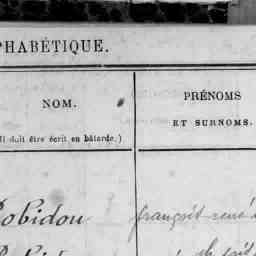 PHABÉTIQUE.
NOM.
Il doit être écrit en bâtarde.)
PRÉNOMS
ET SURNOMS.
Robidou
françois rené